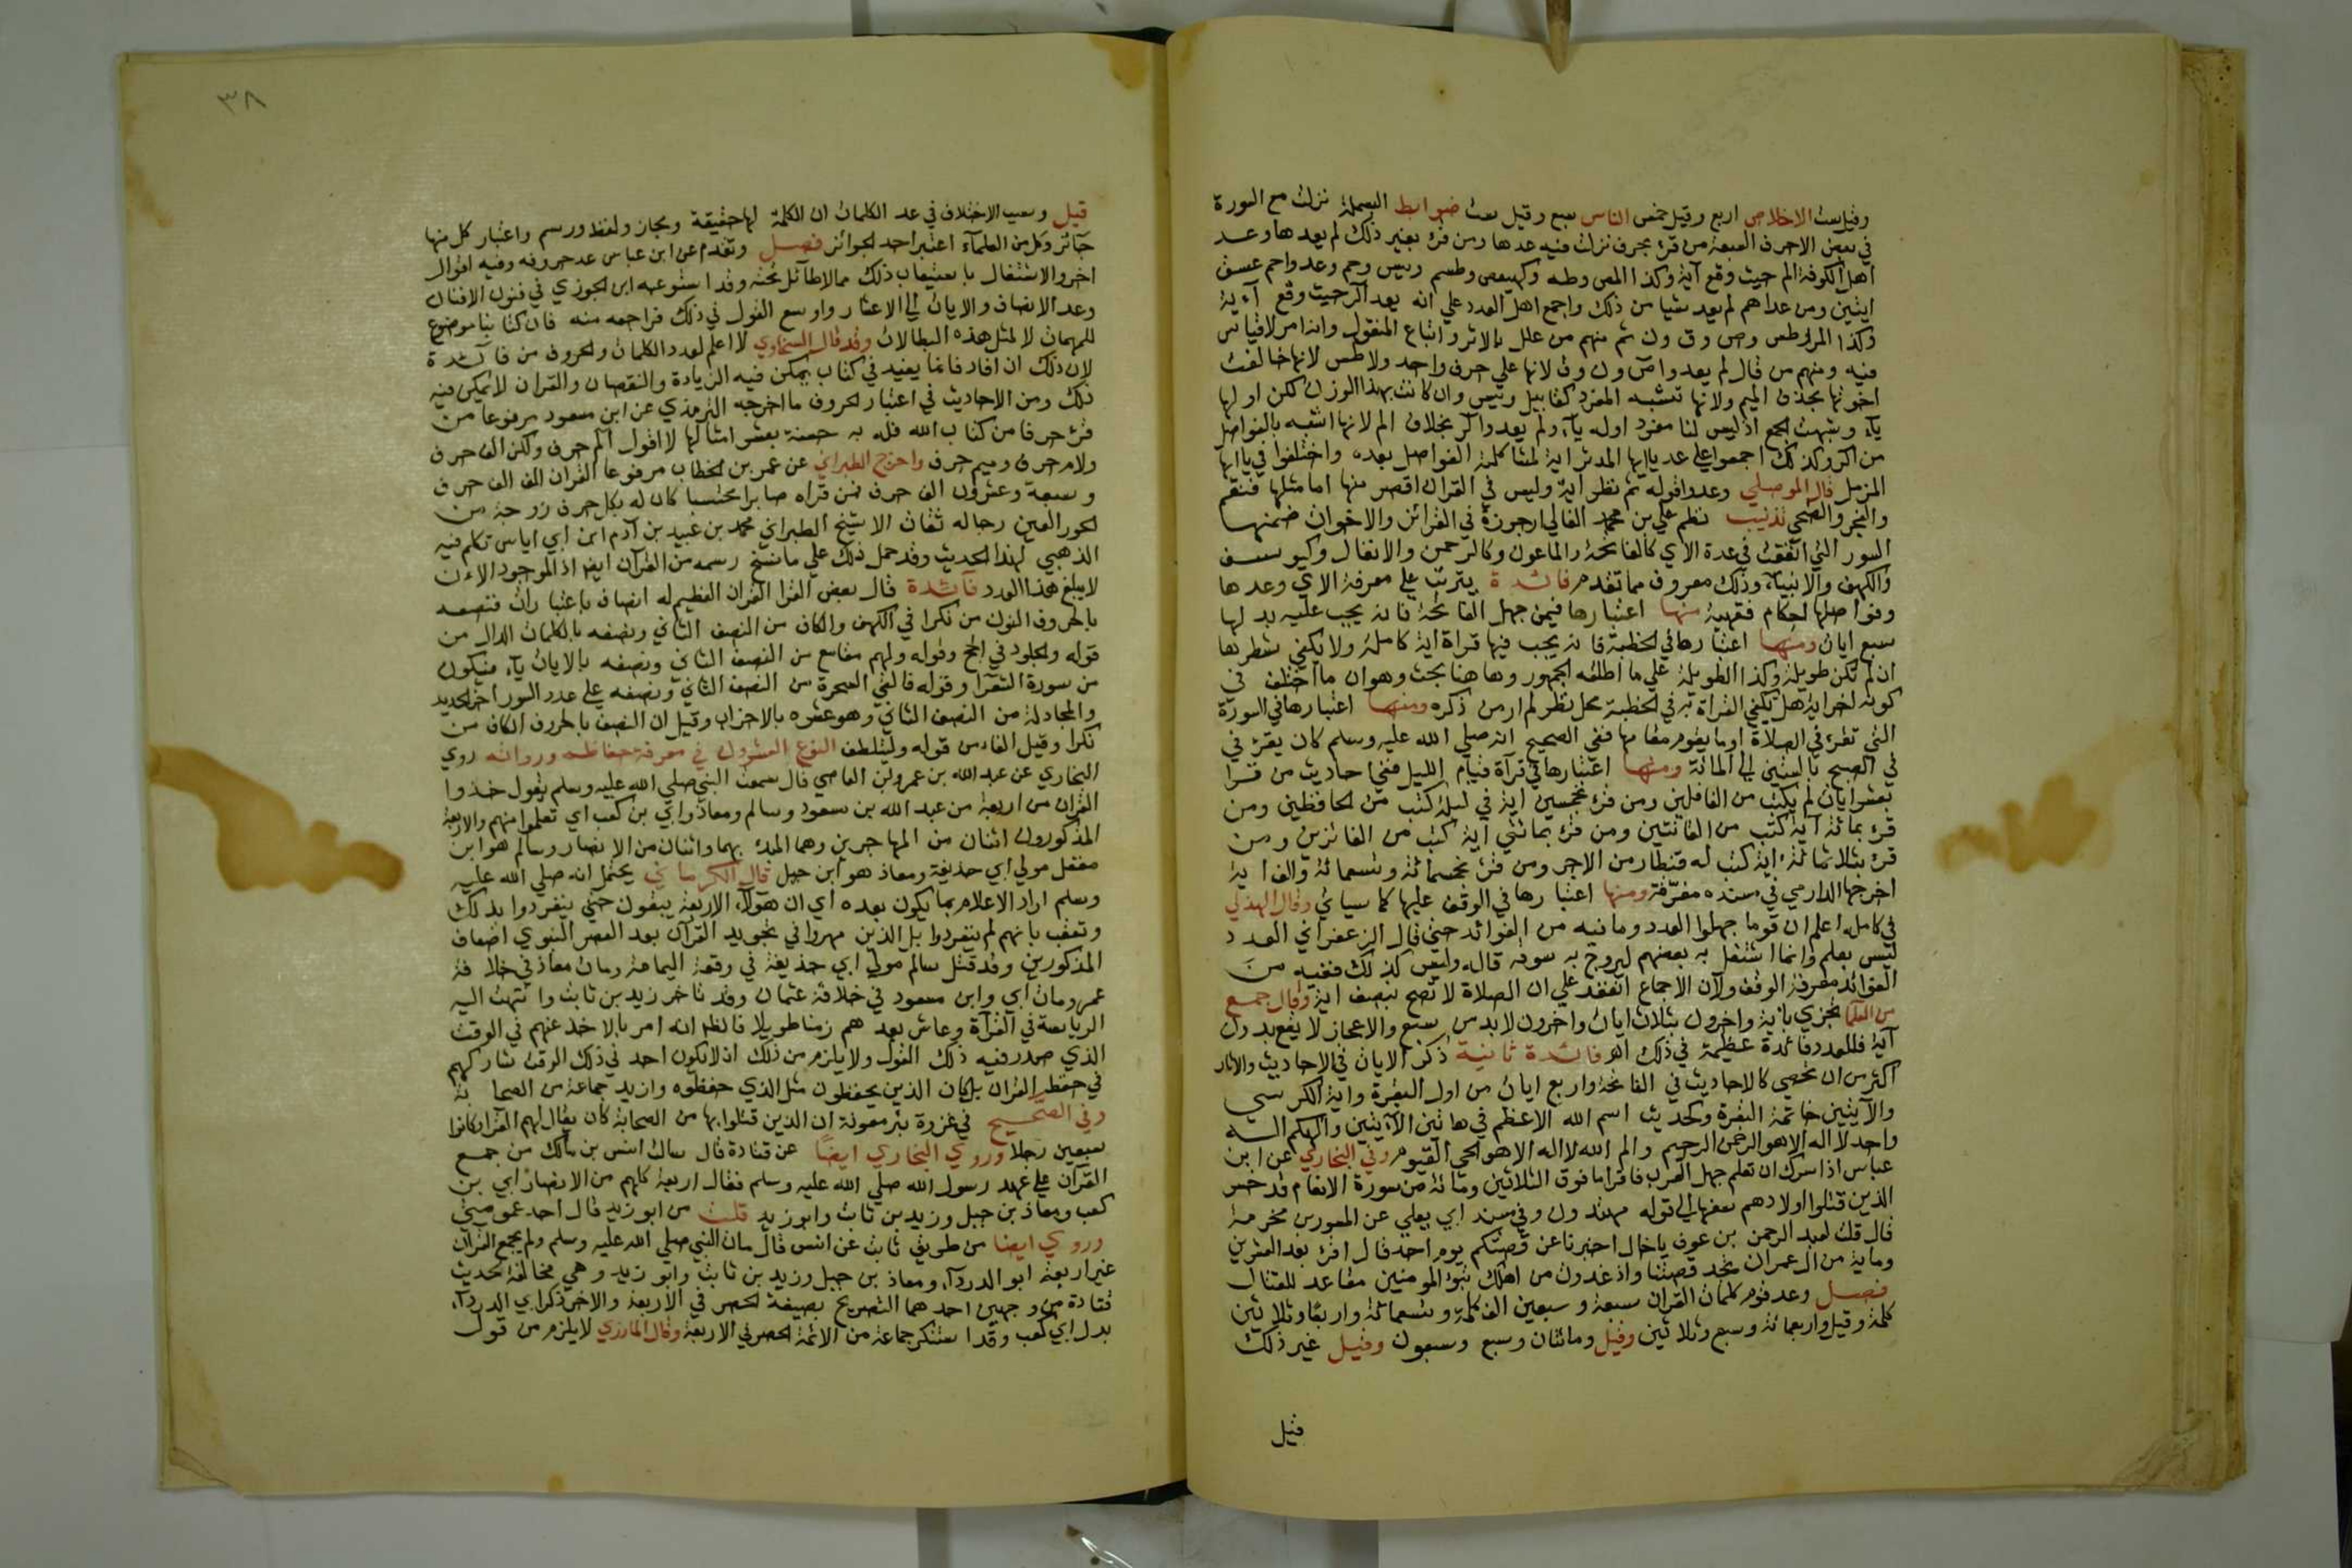 وقيل ست الاخلاص اربع وقيل خمس الناس سبع وقيل ست ضوابط البسملة نزلت مع السورة
في بعض الاحرف السبعة من قرء بحرف نزلت فيه عدها ومن قرء بغير ذلك لم يعدها وعد
اهل الكوفة الم حيث وقع آية وكذا المص وطه وكهيعص وطسم ويس وحم وعدوا حم عسق
ايتين ومن عداهم لم يعد شيا من ذلك واجمع اهل العدد علي انه لا يعد الر حيث وقع آءية
وكذا المر وطس وص وق ون ثم منهم من علل بالاثر واتباع المنقول وانه امر لا قياس
فيه ومنهم من قال لم يعدوا ص ون وق لانها علي حرف واحد ولا طس لانها خالفت
اخوتها بحذف الميم ولانها تشبه المفرد كقابيل ويس وان كانت بهذا الوزن لكن اولها
يآء وشبهت الجمع اذ ليس لنا مفرد اوله يآء ولم يعدوا الر بخلاف الم لانها اشبه بالفواصل
من الر وكذلك اجمعوا علي عد ياايها المدثر اية لمشاكلته الفواصل بعده واختلفوا في ياايها
المزمل قال الموصلي وعدوا قوله ثم نظر اية وليس في القران اقصر منها اما مثلها فنعم
والفجر والضحي تذنيب نظم علي بن محمد الغالي ارجوزة في القرائن والاخوان ضمنها
السور التي اتفقت في عدة الاي كالفاتحة والماعون وكالرحمن والانفال وكيوسف
والكهف والانبيآء وذلك معروف مما تقدم فائدة يترتب علي معرفة الاي وعدها
وفواصلها احكام فقهية منها اعتبارها فيمن جهل الفاتحة فانه يجب عليه بدلها
سبع ايات ومنها اعتبارها في الخطبة فانه يجب فيها قراة اية كاملة ولا يكفي شطرها
ان لم تكن طويلة وكذا الطويلة علي ما اطلقه الجمهور وهاهنا بحث وهو ان ما اختلف في
كونه اخر اية هل تكفي القراة به في الخطبة محل نظر لم ار من ذكره ومنها اعتبارها في السورة
التي تقرء في الصلاة او ما يقوم مقامها ففي الصحيح انه صلي الله عليه وسلم كان يقرء في
في الصبح بالستين الي المائة ومنها اعتبارها في قرآة قيام الليل ففي احاديث من قرا
بعشر ايات لم يكتب من الغافلين ومن قرء بخمسين اية في ليلة كتب من الحافظين ومن
قرء بمائة آية كتب من القانتين ومن قرء بمائتي اية كتب من الفائزين ومن
قرء بثلاثمائة اية كتب له قنطار من الاجر ومن قرء بخمسمائة وتسعمائة والف اية
اخرجها الدارمي في مسنده مفرقة ومنها اعتبارها في الوقف عليها كما سياتي وقال الهذلي
في كامله اعلم ان قوما جهلوا العدد وما فيه من الفوائد حتي قال الزعفراني العدد
ليس بعلم وانما اشتغل به بعضهم ليروج به سوقه قال وليس كذلك ففيه من
الفوائد معرفة الوقف ولآن الاجماع انعقد علي ان الصلاة لا تصح بنصف اية وقال جمع
من العلما تجزي باية واخرون بثلاث ايات واخرون لابد من سبع والاعجاز لا يقع بدون
آية فللعدد فائدة عظيمة في ذلك اه فائدة ثانية ذكر الايات في الاحاديث والاثار
اكثر من ان تحصي كالاحاديث في الفاتحة واربع ايات من اول البقرة واية الكرسي
والآيتين خاتمة البقرة وكحديث اسم الله الاعظم في هاتين الآيتين والهكم اله
واحد لا اله الا هو الرحمن الرحيم والم الله لا اله الا هو الحي القيوم وفي البخاري عن ابن
عباس اذا سرك ان تعلم جهل العرب فاقرا ما فوق الثلاثين ومائة من سورة الانعام قد خسر
الذين قتلوا اولادهم سفها الي قوله مهتدون وفي مسند ابي يعلي عن المسور بن مخرمة
قال قلت لعبد الرحمن بن عوف ياخال اخبرنا عن قصتكم يوم احد قال اقرء بعد العشرين
وماية من ال عمران تجد قصتنا واذ غدوت من اهلك تبوئ المومنين مقاعد للقتال
فصل وعد قوم كلمات القران سبعة وسبعين الف كلمة وتسعمائة واربعا وثلاثين
كلمة وقيل واربعمائة وسبع وثلاثين وقيل ومائتان وسبع وسبعون وقيل غير ذلك
قيل
٣٨
قيل وسبب الاختلاف في عد الكلمات ان الكلمة لها حقيقة ومجاز ولفظ ورسم واعتبار كل منها
جآئز وكل من العلمآء اعتبر احد الجوائز فصل وتقدم عن ابن عباس عد حروفه وفيه اقوال
اخر والاشتغال باستيعاب ذلك مما لا طآئل تحته وقد استوعبه ابن الجوزي في فنون الافنان
وعد الانصاف والاثلاث الي الاعشار واوسع القول في ذلك فراجعه منه فان كتابنا موضوع
للمهمات لا لمثل هذه البطالات وقد قال السخاوي لا اعلم لعدد الكلمات والحروف من فائدة
لان ذلك ان افاد فانما يفيد في كتاب يمكن فيه الزيادة والنقصان والقران لا يمكن فيه
ذلك ومن الاحاديث في اعتبار الحروف ما اخرجه الترمذي عن ابن مسعود مرفوعا من
قرء حرفا من كتاب الله فله به حسنة بعشر امثالها لا اقول الم حرف ولكن الف حرف
ولام حرف وميم حرف واخرج الطبراني عن عمر بن الخطاب مرفوعا القران الف الف حرف
وسبعة وعشرون الف حرف فمن قراه صابرا محتسبا كان له بكل حرف زوجة من
الحور العين رجاله ثقات الا شيخ الطبراني محمد بن عبيد بن آدم ابن ابي اياس تكلم فيه
الذهبي لهذا الحديث وقد حمل ذلك علي ما نسخ رسمه من القرآن ايضا اذ الموجود الاءن
لا يبلغ هذا العدد فآئدة قال بعض القرا القران العظيم له انصاف باعتبارات فنصفه
بالحروف النون من نكرا في الكهف والكاف من النصف الثاني ونصفه بالكلمات الدال من
قوله والجلود في الحج وقوله ولهم مقامع من النصف الثاني ونصفه بالايات يآء فيكون
من سورة الشعرا وقوله فالقي السحرة من النصف الثاني ونصفه علي عدد السور اخر الحديد
والمجادلة من النصف الثاني وهو عشره بالاحزاب وقيل ان النصف بالحروف الكاف من
نكرا وقيل الفاء من قوله وليتلطف النوع العشرون في معرفة حفاظه ورواته روي
البخاري عن عبد الله بن عمرو بن العاصي قال سمعت النبي صلي الله عليه وسلم يقول خذوا
القران من اربعة من عبد الله بن مسعود وسالم ومعاذ وابي بن كعب اي تعلموا منهم والاربعة
المذكورون اثنان من المهاجرين وهما المبدء بهما واثنان من الانصار وسالم هو ابن
معقل مولي ابي حذيفة ومعاذ هو ابن جبل قال الكرماني يحتمل انه صلي الله عليه
وسلم اراد الاعلام بما يكون بعده اي ان هؤلآء الاربعة يبقون حتي ينفردوا بذلك
وتعقب بانهم لم ينفردوا بل الذين مهروا في تجويد القرآن بعد العصر النبوي اضعاف
المذكورين وقد قتل سالم مولي ابي حذيفة في وقعة اليمامة ومات معاذ في خلافة
عمر ومات ابي وابن مسعود في خلافة عثمان وقد تاخر زيد بن ثابت وانتهت اليه
الرياسة في القرآة وعاش بعدهم زمنا طويلا فالظاهر انه امر بالاخذ عنهم في الوقت
الذي صدر فيه ذلك القول ولا يلزم من ذلك ان لا يكون احد في ذلك الوقت شاركهم
في حفظ القران بل كان الذين يحفظون مثل الذي حفظوه وازيد جماعة من الصحابة
وفي الصحيح في غزوة بئر معونة ان الذين قتلوا بها من الصحابة كان يقال لهم القرا وكانوا
سبعين رجلا وروي البخاري ايضا عن قتادة قال سالت انس بن مالك من جمع
القرآن علي عهد رسول الله صلي الله عليه وسلم فقال اربعة كلهم من الانصار ابي بن
كعب ومعاذ بن جبل وزيد بن ثابت وابو زيد قلت من ابو زيد قال احد عمومتي
وروي ايضا من طريق ثابت عن انس قال مات النبي صلي الله عليه وسلم ولم يجمع القران
غير اربعة ابو الدردآء ومعاذ بن جبل وزيد بن ثابت وابو زيد وهي مخالفة لحديث
قتادة من وجهين احدهما التصريح بصيغة الحصر في الاربعة والاخر ذكر ابي الدردآء
بدل ابي كعب وقد استنكر جماعة من الائمة الحصر في الاربعة وقال المازري لا يلزم من قول